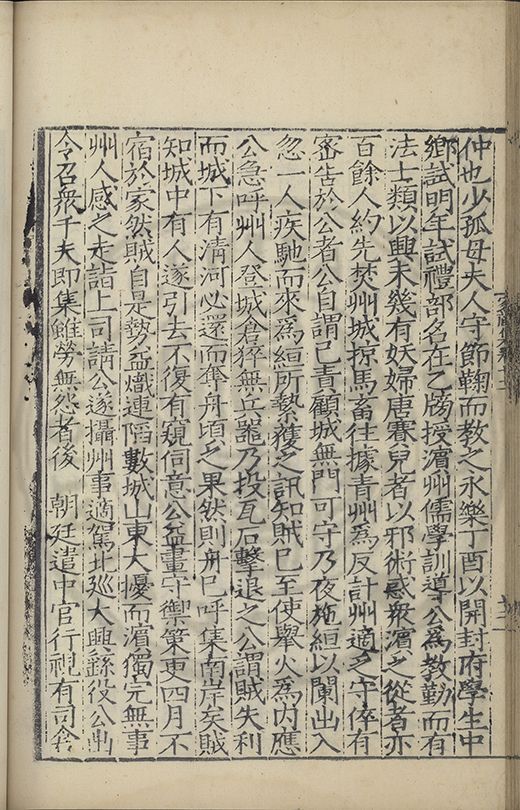 仲也少孤母夫人守節鞠而教之永樂丁酉以開封府學生中
鄉試明年試禮部名在乙牓授濵州儒學訓導公爲教勤而有
法士類以興未幾有妖婦唐賽兒者以邪術惑衆濵之從者亦
百餘人約先焚州城掠馬畜往據青州爲反計州適乏守倅有
密告於公者公自謂己責顧城無門可守乃夜施絙以闌出入
忽一人疾馳而來爲絙所縶獲之訊知賊已至使舉火爲内應
公急呼州人登城倉猝無兵器乃投瓦石擊退之公謂賊失利
而城下有清河必還而奪舟頃之果然則舟已呼集南岸矣賊
知城中有人遂引去不復有窺伺意公益畫守禦策吏四月不
宿於家然賊自是勢益熾連陷數城山東大擾而濵獨完無事
州人感之走詣上司請公遂攝州事適駕北巡大興繇役公出
令召衆千夫即集雖勞無怨者後　朝廷遣中官行視有司舍